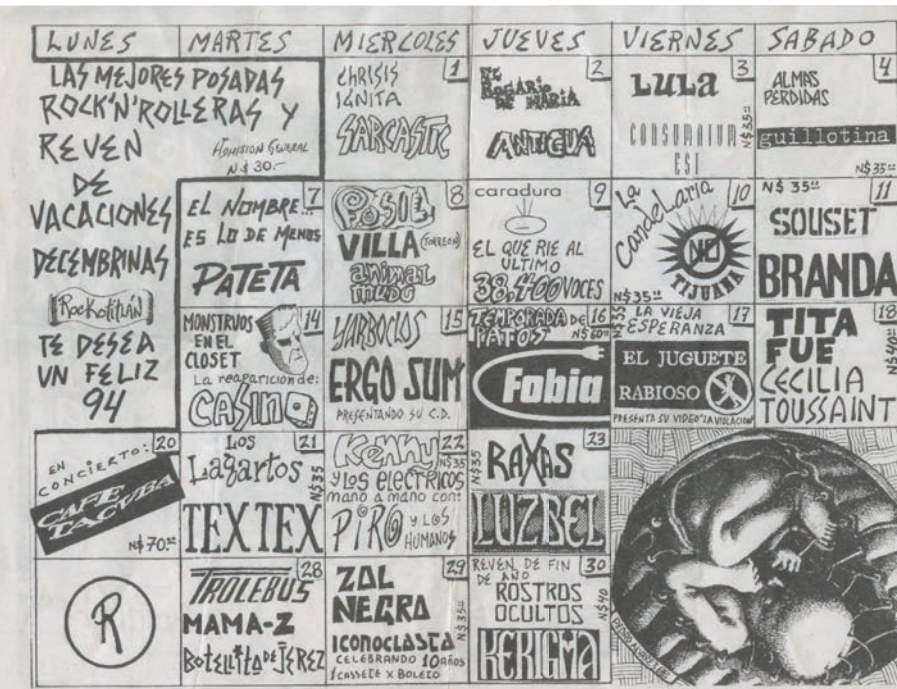 LUNES
MARTES
MIERCOLES
JUEVES
VIERNES
SABADO
LAS MEJORES POSADAS
ROCK'N'ROLLERAS Y
REVEN
ADMISION GENERAL
N$30.-
DE
VACACIONES
DECEMBRINAS
Rockotitlán
TE DESEA
UN FELIZ
94
1
CHRISIS
IGNITA
SARCASTIC
2
EL
ROSARIO
DE MARIA
ANTIGUA
3
LULA
CONSUMATUM
EST
N$35.00
4
ALMAS
PERDIDAS
guillotina
N$35.00
7
EL NOMBRE...
ES LO DE MENOS
PATETA
8
FOSIL
VILLA (TORREON)
animal
mudo
9
caradura
EL QUE RIE AL
ULTIMO
38,400 VOCES
10
La
Candelaria
NO
TIJUANA
N$35.00
11
N$ 35.00
SOUSET
BRANDA
14
MONSTRUOS
EN EL
CLOSET
La reaparicion de:
CASINO
15
YARBOCLOS
ERGO SUM
PRESENTANDO SU C.D.
16
TEMPORADA DE
PATOS
N$60.00
Fobia
17
LA VIEJA
ESPERANZA
N$35.00
EL JUGUETE
RABIOSO
PRESENTA SU VIDEO "LA VIOLACION"
18
TITA
FUE
CECILIA
TOUSSAINT
N$40.00
20
EN
CONCIERTO:
CAFE
TACVBA
N$70.00
21
LOS
Lagartos
N$35
TEX TEX
22
Kenny
N$35
y LOS ELECTRICOS
mano a mano con:
PIRO y LOS
HUMANOS
23
RAXAS
N$35
LUZBEL
R
28
TROLEBUS
MAMA-Z
BOTELLITA DE JEREZ
29
ZOL
NEGRO
N$35.00
ICONOCLASTA
CELEBRANDO 10 AÑOS
1 CASSETE X BOLETO
30
REVEN DE FIN
DE AÑO
ROSTROS
OCULTOS
N$40
KERIGMA